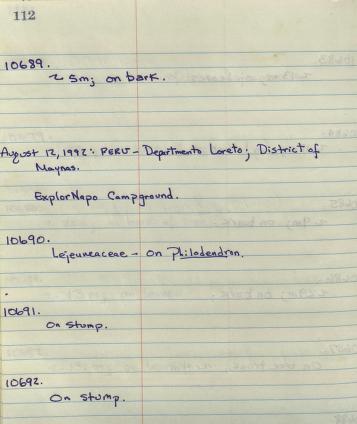 112
10689.
~ 5m; on bark.
August 12, 1992: PERU - Departmento Loreto; District of
Maynas.
ExplorNapo Campground.
10690.
Lejeuneaceae - on Philodendron.
10691.
On stump.
10692.
On stump.